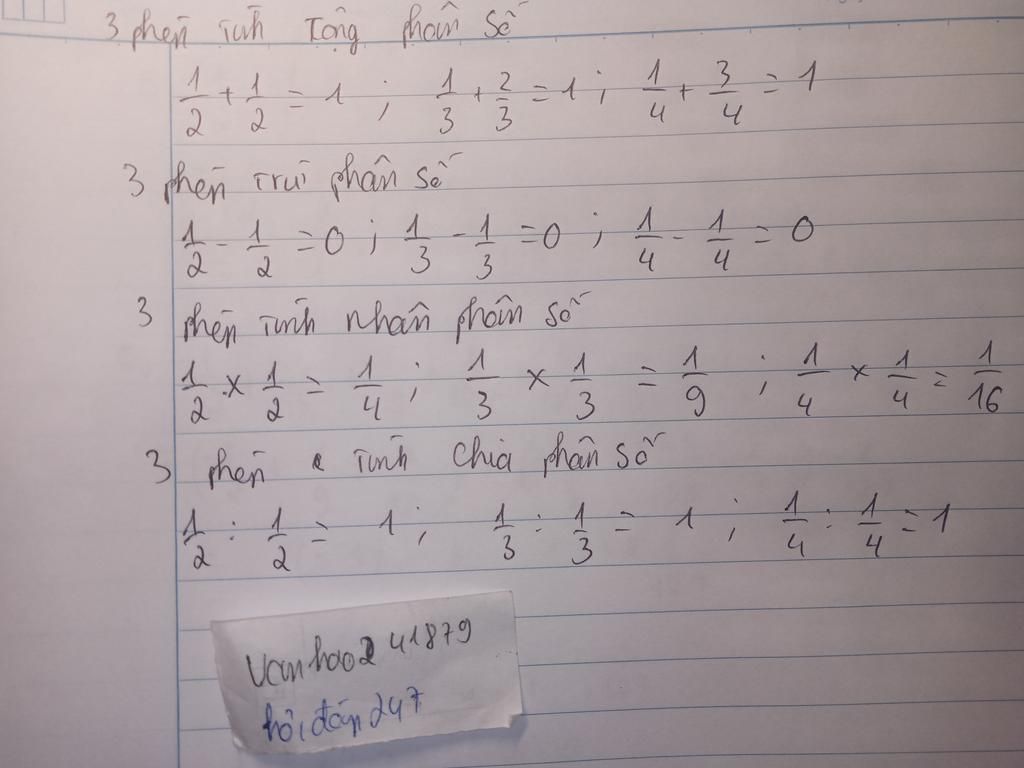 3 phép tính tổng phân số
1/2 + 1/2 = 1 ; 1/3 + 2/3 = 1 ; 1/4 + 3/4 = 1
3 phép trừ phân số
1/2 - 1/2 = 0 ; 1/3 - 1/3 = 0 ; 1/4 - 1/4 = 0
3 phép tính nhân phân số
1/2 × 1/2 = 1/4 ; 1/3 × 1/3 = 1/9 ; 1/4 × 1/4 = 1/16
3 phép tính chia phân số
1/2 : 1/2 = 1 ; 1/3 : 1/3 = 1 ; 1/4 : 1/4 = 1
vanhao241879
hỏi đáp 247